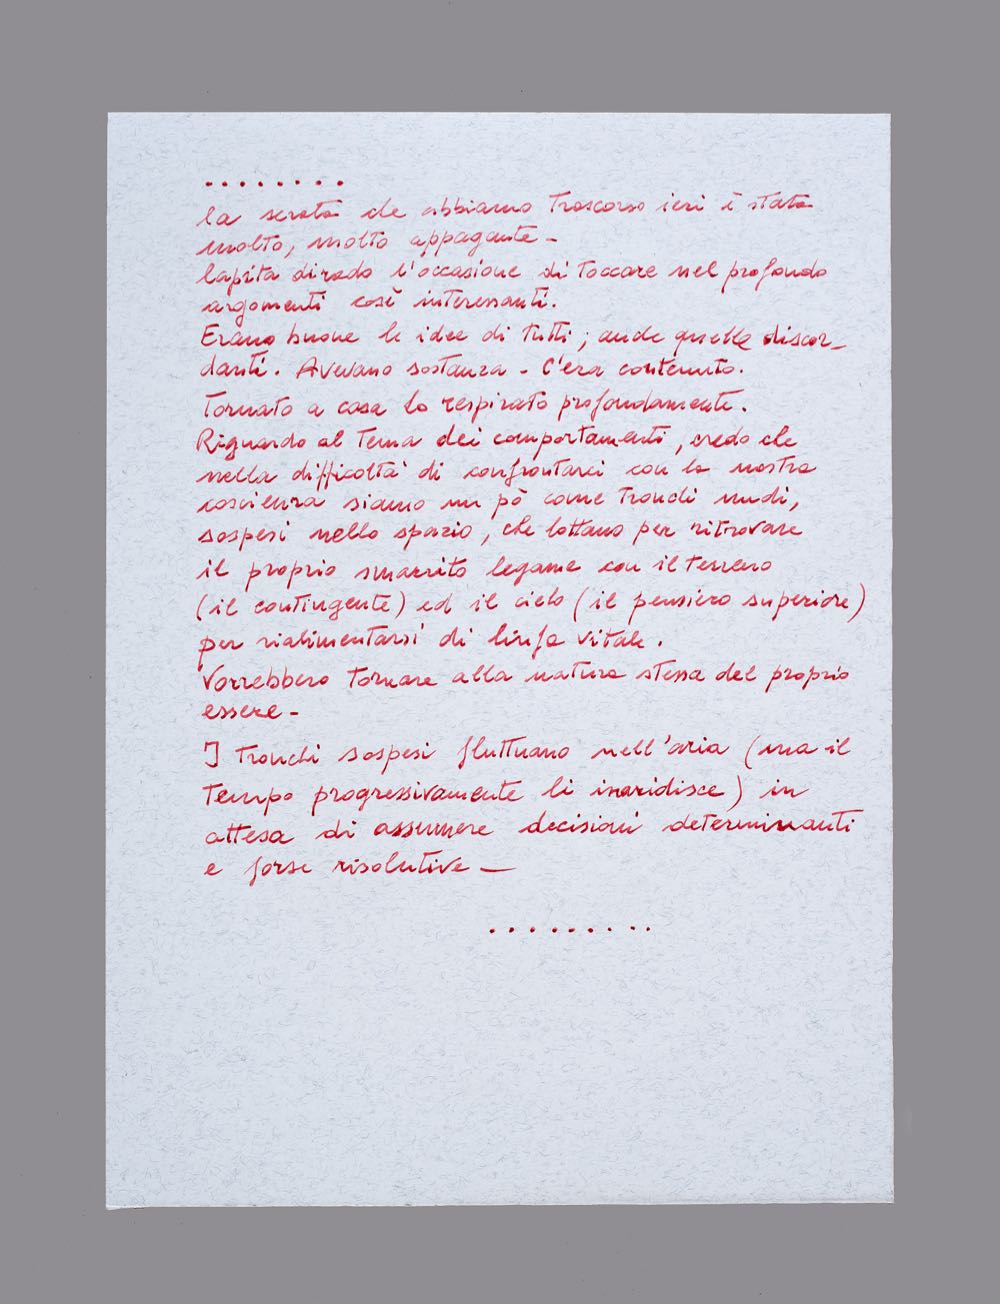 ........
la serata che abbiamo trascorso ieri è stata
molto, molto appagante -
Capita di rado l'occasione di toccare nel profondo
argomenti così interessanti.
Erano buone le idee di tutti; anche quelle discor-
danti. Avevano sostanza - C'era contenuto.
Tornato a casa ho respirato profondamente.
Riguardo al tema dei comportamenti, credo che
nella difficoltà di confrontarci con la nostra
coscienza siamo un pò come tronchi nudi,
sospesi nello spazio, che lottano per ritrovare
il proprio smarrito legame con il terreno
(il contingente) ed il cielo (il pensiero superiore)
per rialimentarsi di linfa vitale.
Vorrebbero tornare alla natura stessa del proprio
essere -
I tronchi sospesi fluttuano nell'aria (ma il
tempo progressivamente li inaridisce) in
attesa di assumere decisioni determinanti
e forse risolutive —
.........